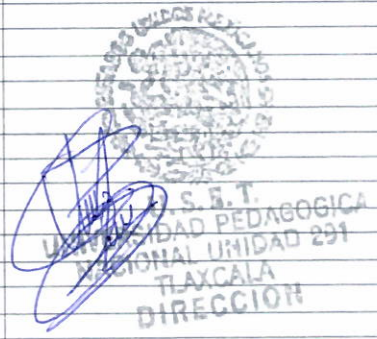 ESTADOS UNIDOS MEXICANOS
S. E. T.
UNIVERSIDAD PEDAGOGICA
NACIONAL UNIDAD 291
TLAXCALA
DIRECCION